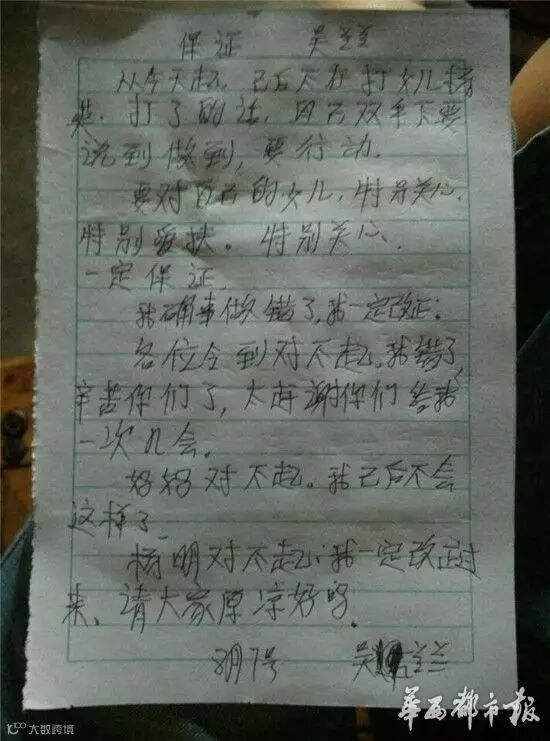 保证 吴兰兰
从今天起，己后不在打女儿杨
英．打了的话，自己双手下要
说到做到，要行动．
要对自己的女儿，特别关心．
特别爱抚。特别关心、
一定保证．
我确事做错了，我一定改正：
各位令到对不起。我错了，
辛苦你们了，太再谢你们给我
一次几会。
好好对不起。我己后不会
这样了、
杨明对不起：我一定改正过
来、请大家原凉好吗．
8月7号 吴兰兰
华西都市报
大数跨境